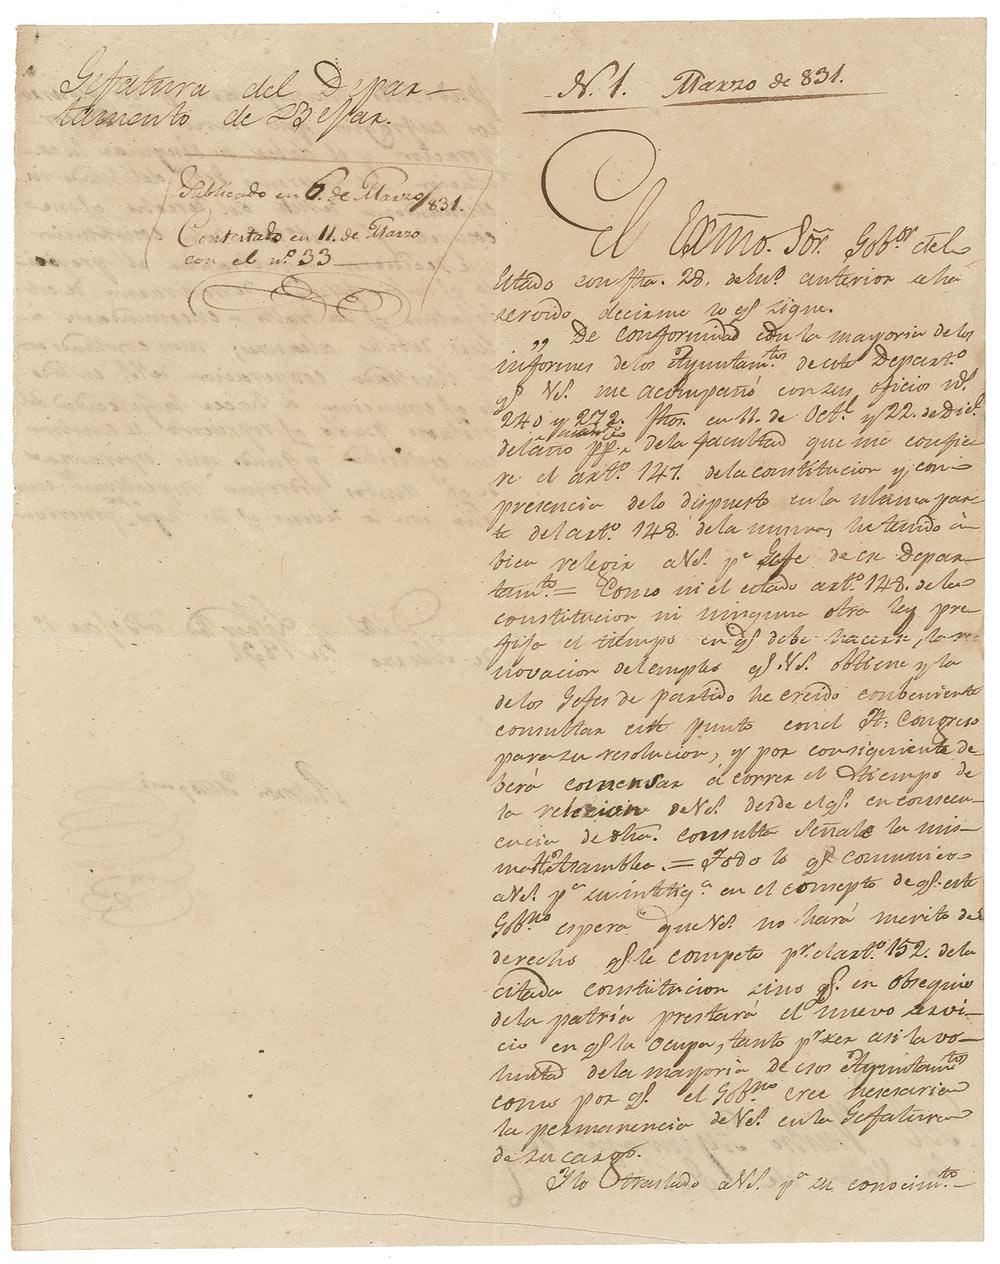 Gefatura del Depar-
tamento de Bejar.
Publicado en 6. de Marzo/831.
Contestado en 11. de Marzo
con el nº. 33
N. 1. Marzo de 831.
El Exmo. Sôr. Gobor. del
Estado con fha. 28. de anterior se ha
servido decirme lo qe. sigue.
" De conformidad con la mayoria de los
informes de los Ayuntamtos. de este Departo.
qe. VS. me acompañó con sus oficios ns.
240 y 272. fhos. en 11. de Octe. y 22. de Dice.
del año pp. de la facultad que me confie-
re el arto. 147. de la constitucion y con
presencia de lo dispuesto en la ultima par-
te del arto. 148. de la misma, he tenido á
bien relegir a VS. pa. Gefe de ese Depar-
tamto. = Como ni el citado arto. 148. de la
constitucion ni ninguna otra ley pre-
fija el tiempo en qe. debe hacerse, la re-
novacion del empleo qe. VS. obtiene y la
de los Gefes de partido he creido conveniente
consultar este punto con el H. Congreso
para su resolucion, y por consiguiente de-
berá comensar á correr el tiempo de
la releccion de VS. desde el qe. en consecu-
encia de dha. consulta señale la mis-
ma Asamblea. = Todo lo qe. comunico
a VS. pa. su intliga. en el concepto de qe. este
Gobno. espera que VS. no hará merito del
derecho qe. le compete pr. el arto. 152. de la
citada constitucion sino qe. en obsequio
de la patria prestará el nuevo servi-
cio en qe. la ocupa, tanto pr. ser asi la vo-
luntad de la mayoria de esos Ayuntamtos.
como por qe. el Gobno. cree nesesaria
la permanencia de VS. en la Gefatura
de su cargo.
Y lo traslado a VS. pa. su conocimto.